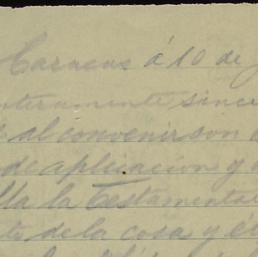 Caracas á 10 de
enteramente since
al convenir son
de aplicacion y
lla la testamentar
te de la cosa y